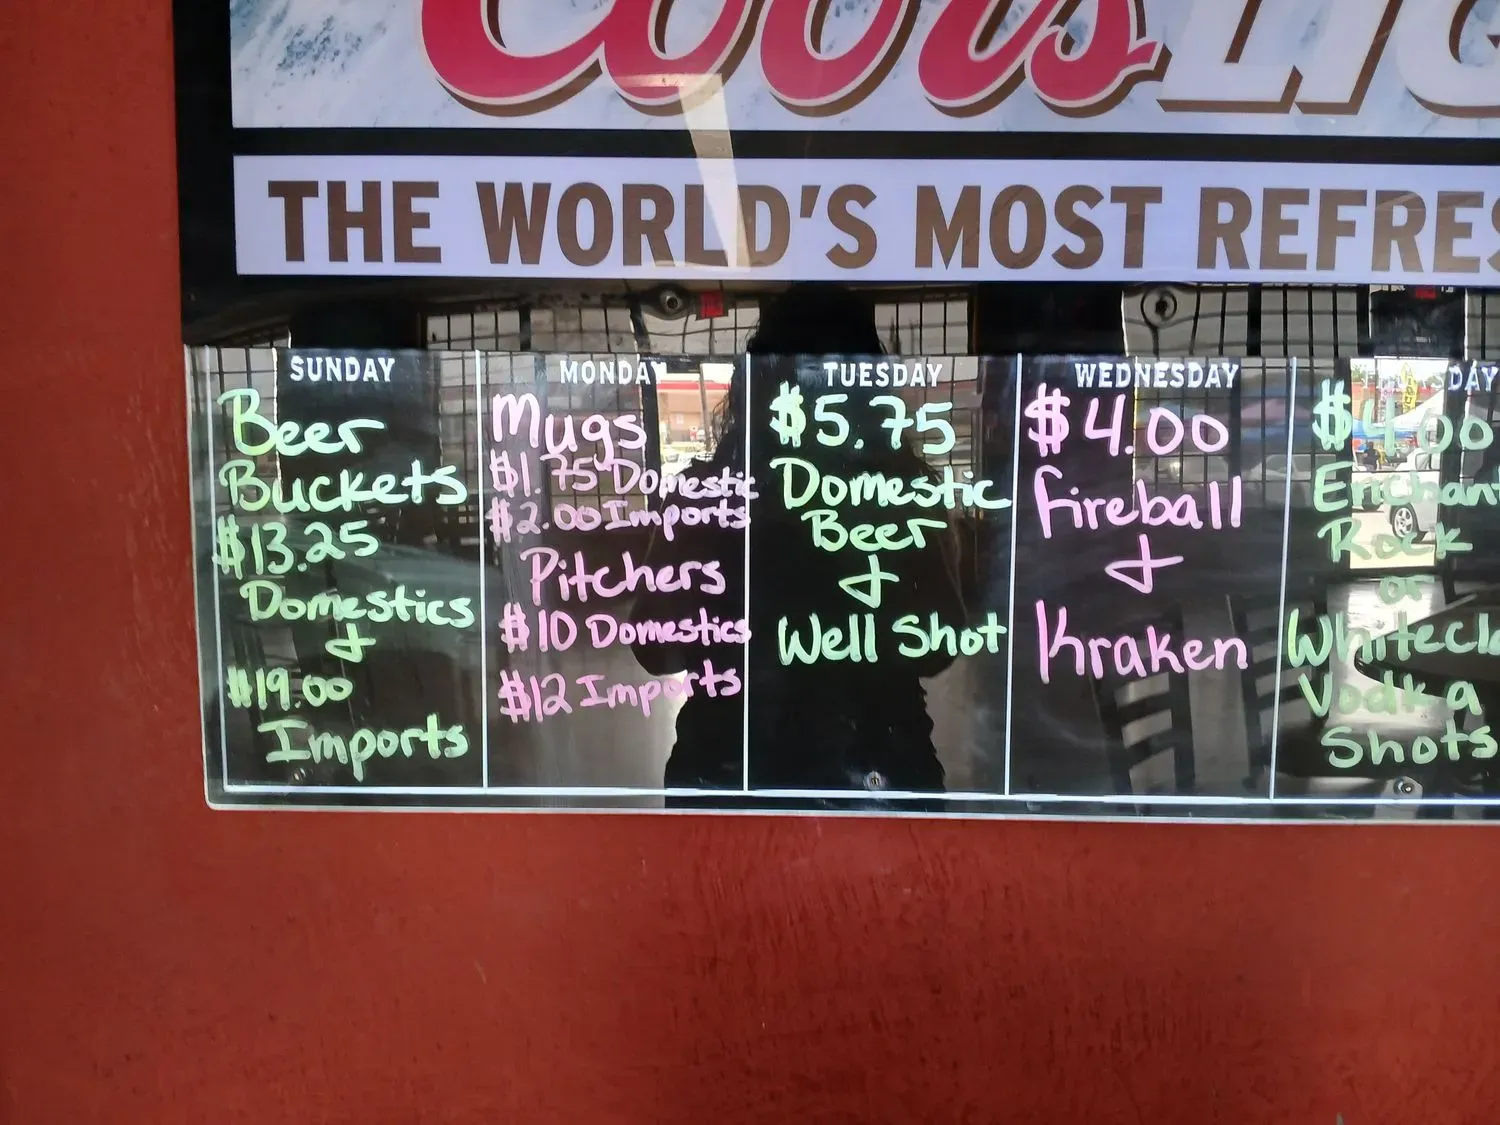 Coors
THE WORLD'S MOST
SUNDAY
Beer
Buckets
$13.25
Domestics
&
$19.00
Imports
MONDAY
Mugs
$1.75 Domestic
$2.00 Imports
Pitchers
$10 Domestics
$12 Imports
TUESDAY
$5.75
Domestic
Beer
&
Well Shot
WEDNESDAY
$4.00
Fireball
&
Kraken
DAY
$4.00
Enchant
Rock
or
Whitecl
Vodka
Shots